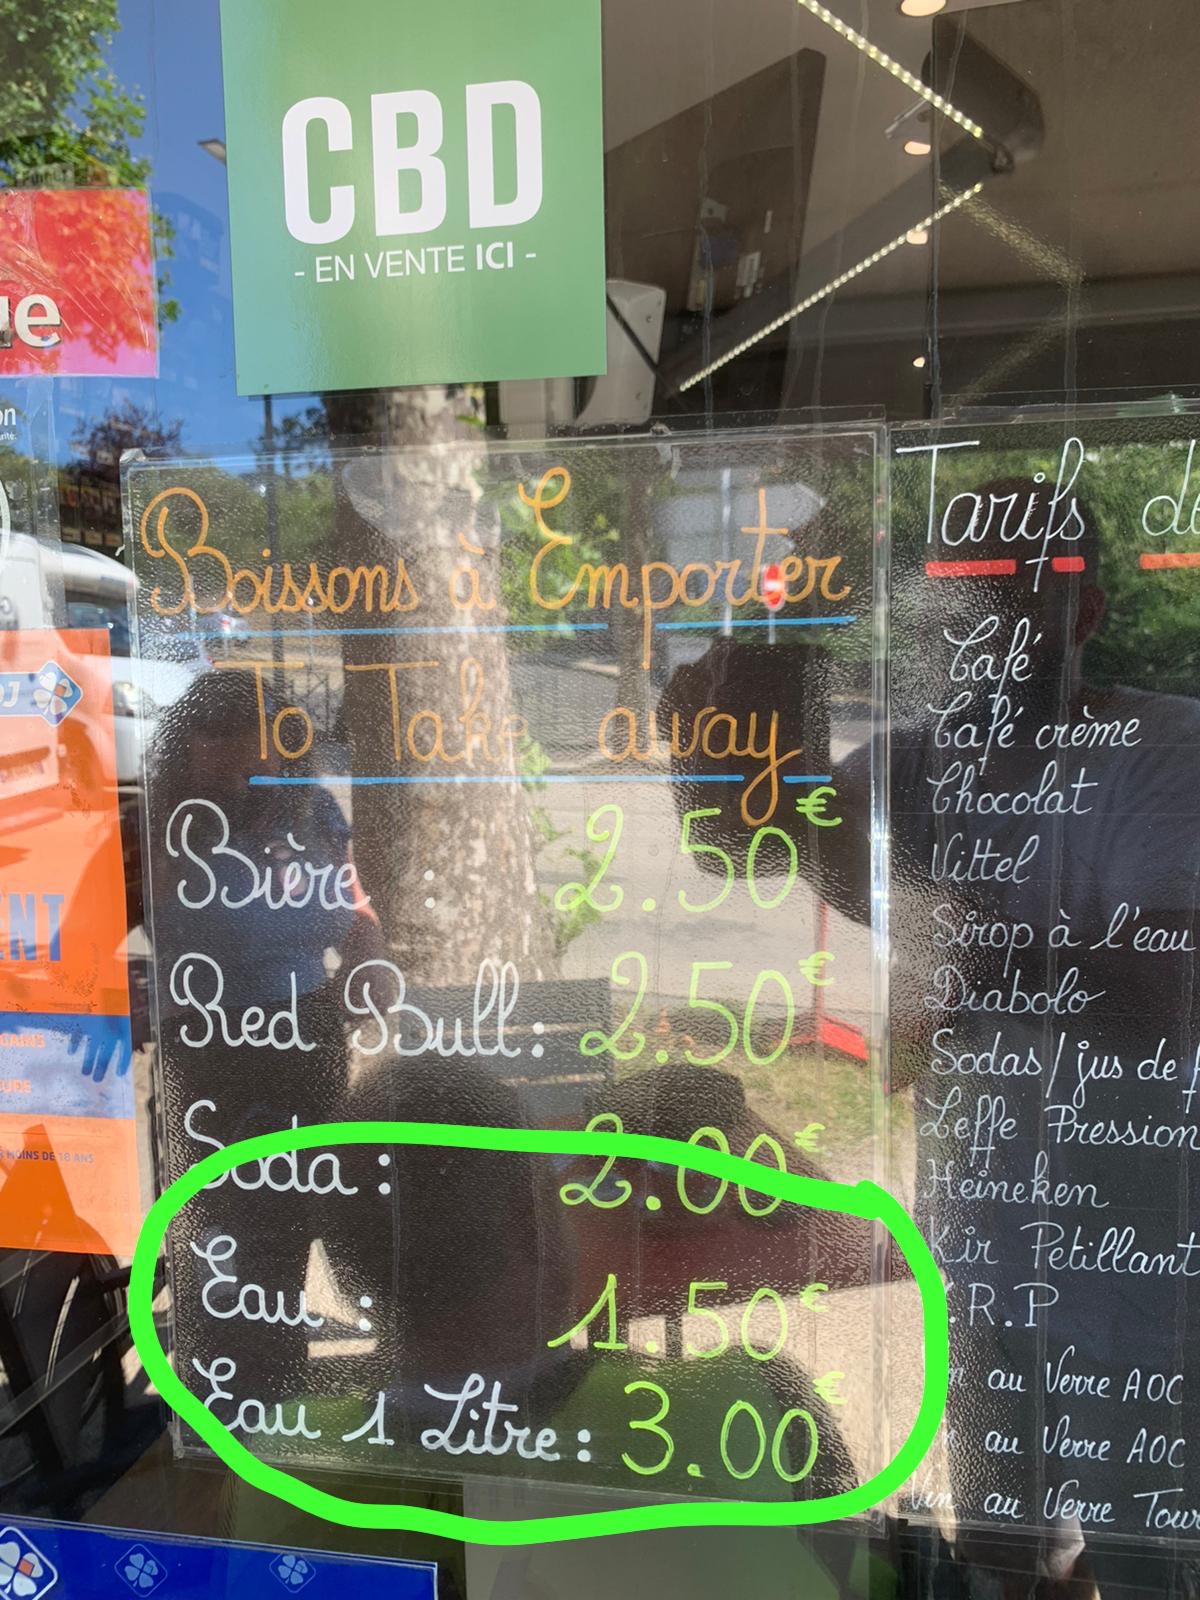 CBD
- EN VENTE ICI -
ue
Boissons à Emporter
To Take away
Bière : 2.50€
Red Bull : 2.50€
Soda : 2.00€
Eau : 1.50€
Eau 1 Litre : 3.00€
Tarifs
Café
Café crème
Chocolat
Vittel
Sirop à l'eau
Diabolo
Sodas / jus de
Leffe Pression
Heineken
Kir Petillant
.R.P
au Verre AOC
au Verre AOC
Vin au Verre Tour
ENT
MOINS DE 18 ANS